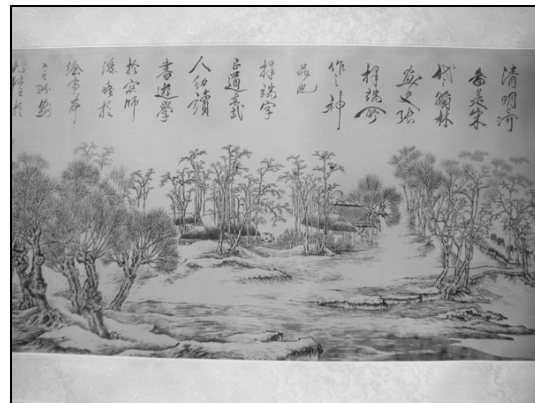 清明河
是宋
代翰林
畫史張
擇端所
作之神
品也
擇端字
正道武
人幼讀
書遊學
於京師
後於
繪事本
工